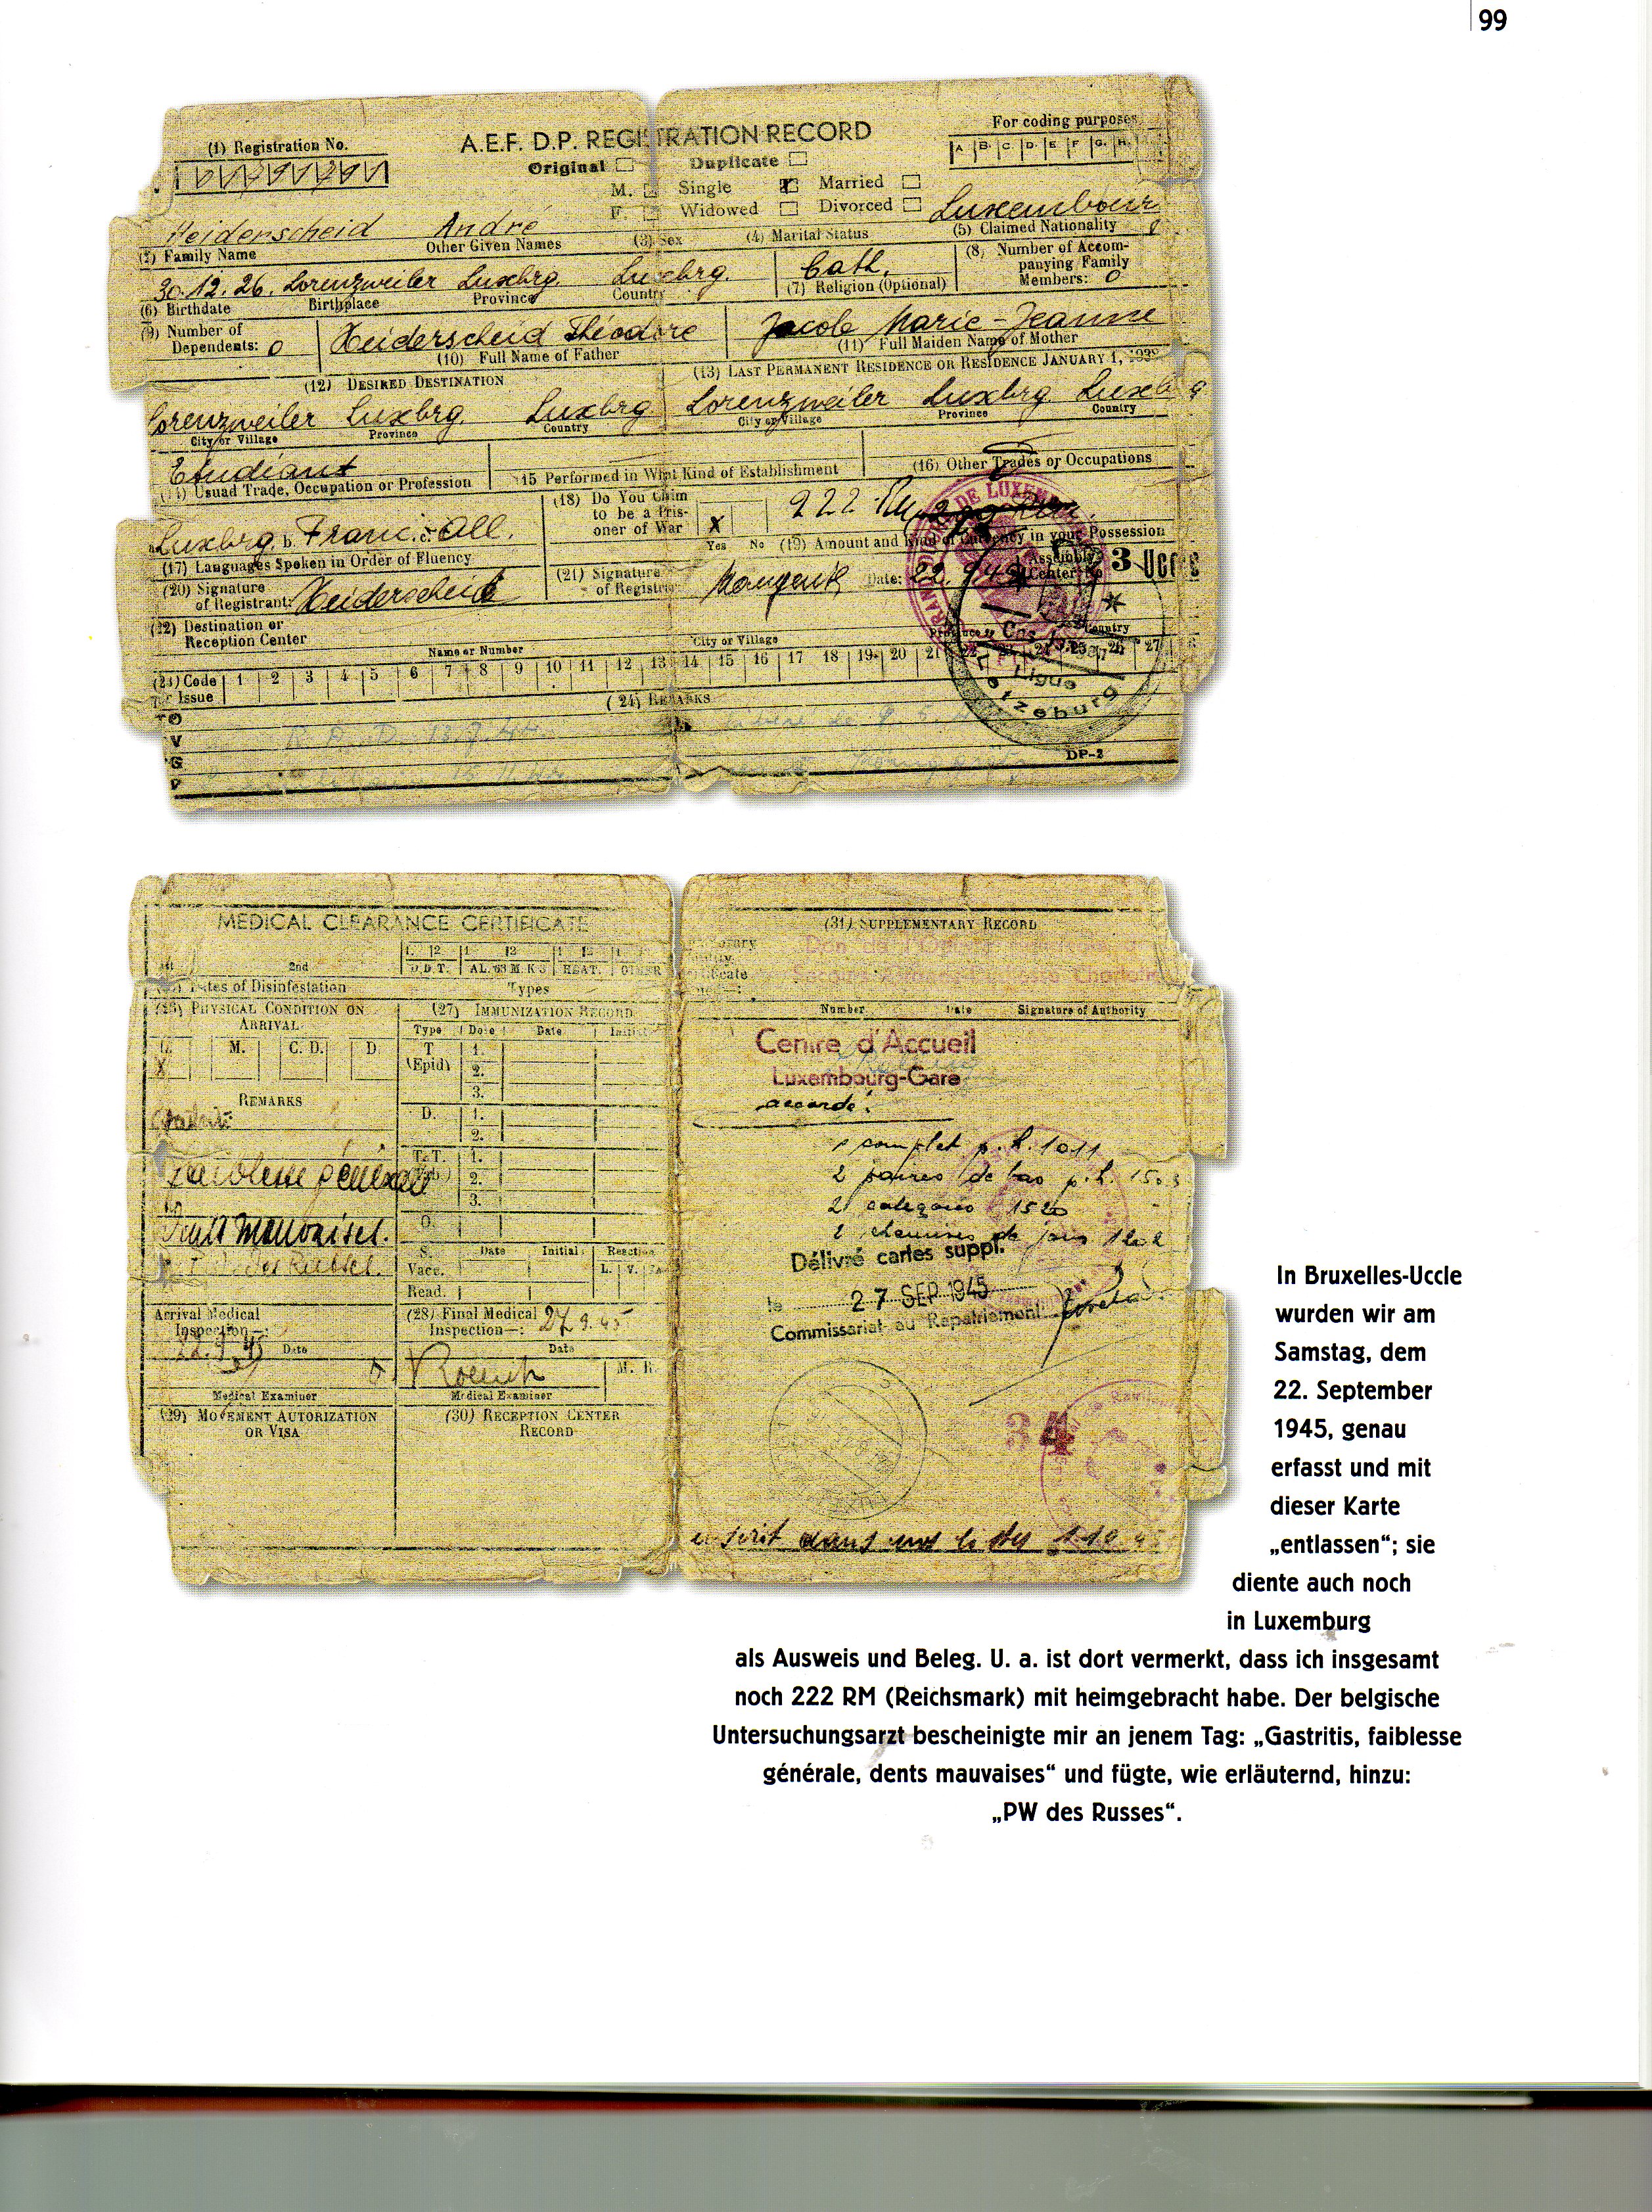 99
(1) Registration No.
A.E.F. D.P. REGISTRATION RECORD
For coding purposes
Original Duplicate
A B. C D. E F G. H.
M. Single Married
F. Widowed Divorced
Luxembour
Heiderscheid André
(2) Family Name Other Given Names (3) Sex (4) Marital Status (5) Claimed Nationality
30.12.26. Lorenzweiler Luxbrg. Luxbrg. Cath.
(6) Birthdate Birthplace Province Country (7) Religion (Optional)
(8) Number of Accom-
panying Family
Members: 0
(9) Number of
Dependents: 0
Heiderscheid Théodore
(10) Full Name of Father
Jacobe Marie-Jeanne
(11) Full Maiden Name of Mother
(12) DESIRED DESTINATION
(13) LAST PERMANENT RESIDENCE OR RESIDENCE JANUARY 1, 1938
Lorenzweiler Luxbrg. Luxbrg Lorenzweiler Luxbrg. Luxbg
City or Village Province Country City or Village Province Country
Etudiant
(14) Usuad Trade, Occupation or Profession
15 Performed in What Kind of Establishment
(16) Other Trades or Occupations
Luxbrg. b. Franc. c. All.
(17) Languages Spoken in Order of Fluency
(18) Do You Claim
to be a Pris-
oner of War
X
Yes No
222
(19) Amount and Kind of Currency in your Possession
(20) Signature
of Registrant: Heiderscheid
(21) Signature
of Registrar
Date: 22.9.45
Assembly
Center No
3 Uccle
(22) Destination or
Reception Center
Name or Number City or Village Province Country
(23) Code
for Issue
1 2 3 4 5 6 7 8 9 10 11 12 13 14 15 16 17 18 19 20 21 22 23 24 25 26 27
(24) REMARKS
R.A.D. 18.7.44
Ligue
Letzeburg
DP-2
MEDICAL CLEARANCE CERTIFICATE
1st 2nd
D.D.T. AL. 63 M.K 3 HEAT. OTHER
Dates of Disinfestation Types
(25) PHYSICAL CONDITION ON
ARRIVAL
M. C. D. D.
X
REMARKS
faiblesse générale
Dents mauvaises.
(27) IMMUNIZATION RECORD
Type Dose Date Initial
T 1.
(Epid) 2.
3.
D. 1.
2.
T.T. 1.
2.
3.
O.
S. Date Initial Reaction
Vacc. L. V.
Read.
Arrival Medical
Inspection—:
22.9.45 Date
Medical Examiner
(28) Final Medical
Inspection—: 27.9.45
Date
M. R.
Medical Examiner
(29) MOVEMENT AUTORIZATION
OR VISA
(30) RECEPTION CENTER
RECORD
(31) SUPPLEMENTARY RECORD
Number Date Signature of Authority
Centre d'Accueil
Luxembourg-Gare
accordé:
1 complet p. h. 1011
2 paires de bas p. h. 1503
2 caleçons 1520
2 chemises de jour 1202
Délivré cartes suppl.
le 27 SEP 1945
Commissariat au Rapatriement
34
inscrit dans nos listes 1.10.45
In Bruxelles-Uccle
wurden wir am
Samstag, dem
22. September
1945, genau
erfasst und mit
dieser Karte
„entlassen“; sie
diente auch noch
in Luxemburg
als Ausweis und Beleg. U. a. ist dort vermerkt, dass ich insgesamt
noch 222 RM (Reichsmark) mit heimgebracht habe. Der belgische
Untersuchungsarzt bescheinigte mir an jenem Tag: „Gastritis, faiblesse
générale, dents mauvaises“ und fügte, wie erläuternd, hinzu:
„PW des Russes“.